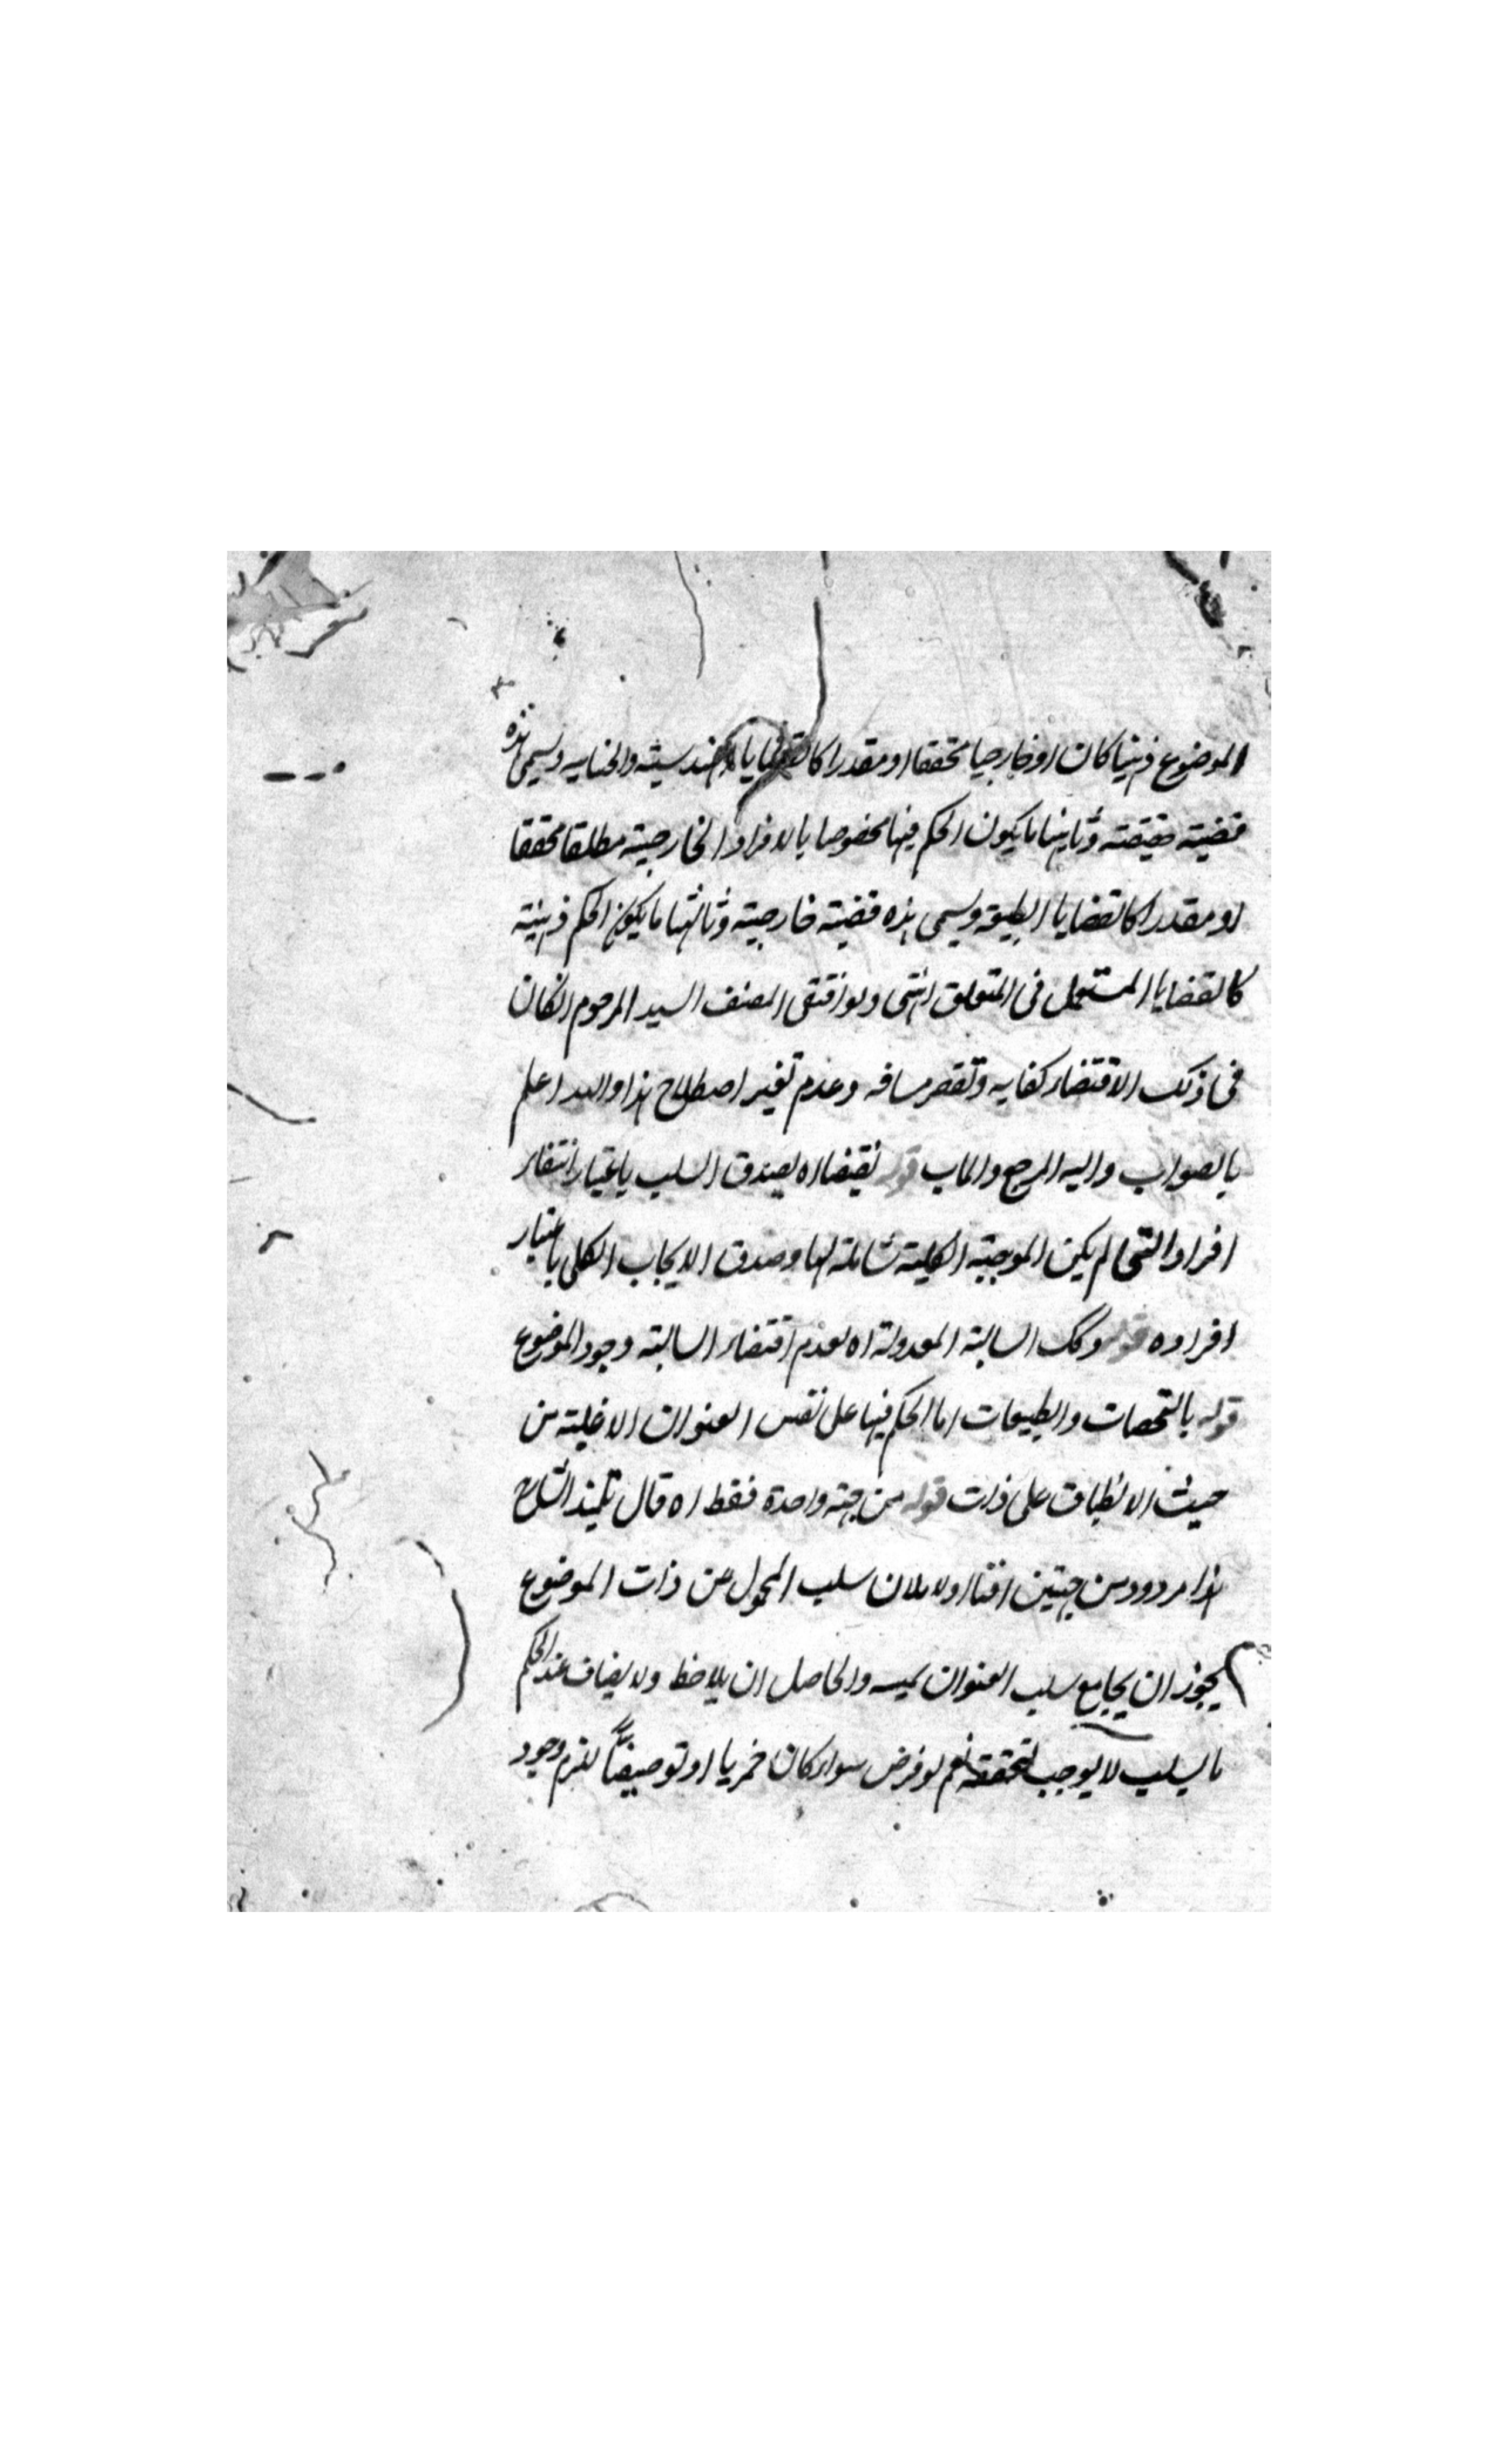 الموضوع ذهنيا كان او خارجيا محققا او مقدرا كالقضايا الهندسية والحسابيه ويسمى هذه
قضية حقيقته وثانيها ما يكون الحكم فيها مخصوصا بالافراد الخارجية مطلقا محققا
او مقدرا كالقضايا الطبيعية ويسمى هذه قضية خارجية وثالثها ما يكون الحكم ذهنية
كالقضايا المستعمل فى المنطق انتهى ولو اقتفى المصنف السيد المرحوم لكان
فى ذلك الاقتضاء كفايه وتقصر مسافه وعدم تغير اصطلاح هذا والله اعلم
بالصواب واليه المرجع والماب قوله نقيضا اه لصدق السلب باعتبار انتفاء
افراد التى لم يكن الموجبة الكلية شاملة لها وصدق الايجاب الكلى باعتبار
افراده قوله وكك السالبة المعدولة اه لعدم اقتضاء السالبة وجود الموضوع
قوله بالشخصات والطبيعات اما الحكم فيها على نفس العنوان الاخلية من
حيث الانطباق على ذات قوله من جهة واحدة فقط اه قال تلميذ الشارح
هذا مردود من جهتين اما اولا فلان سلب المحمول عن ذات الموضوع
يجوز ان يجامع سلب العنوان والحاصل ان يلاحظ ولا يضاف عند الحكم
ما يسلب لا يوجب تحققه نعم لو فرض سواء كان خبريا او توصيفيا لزم وجود